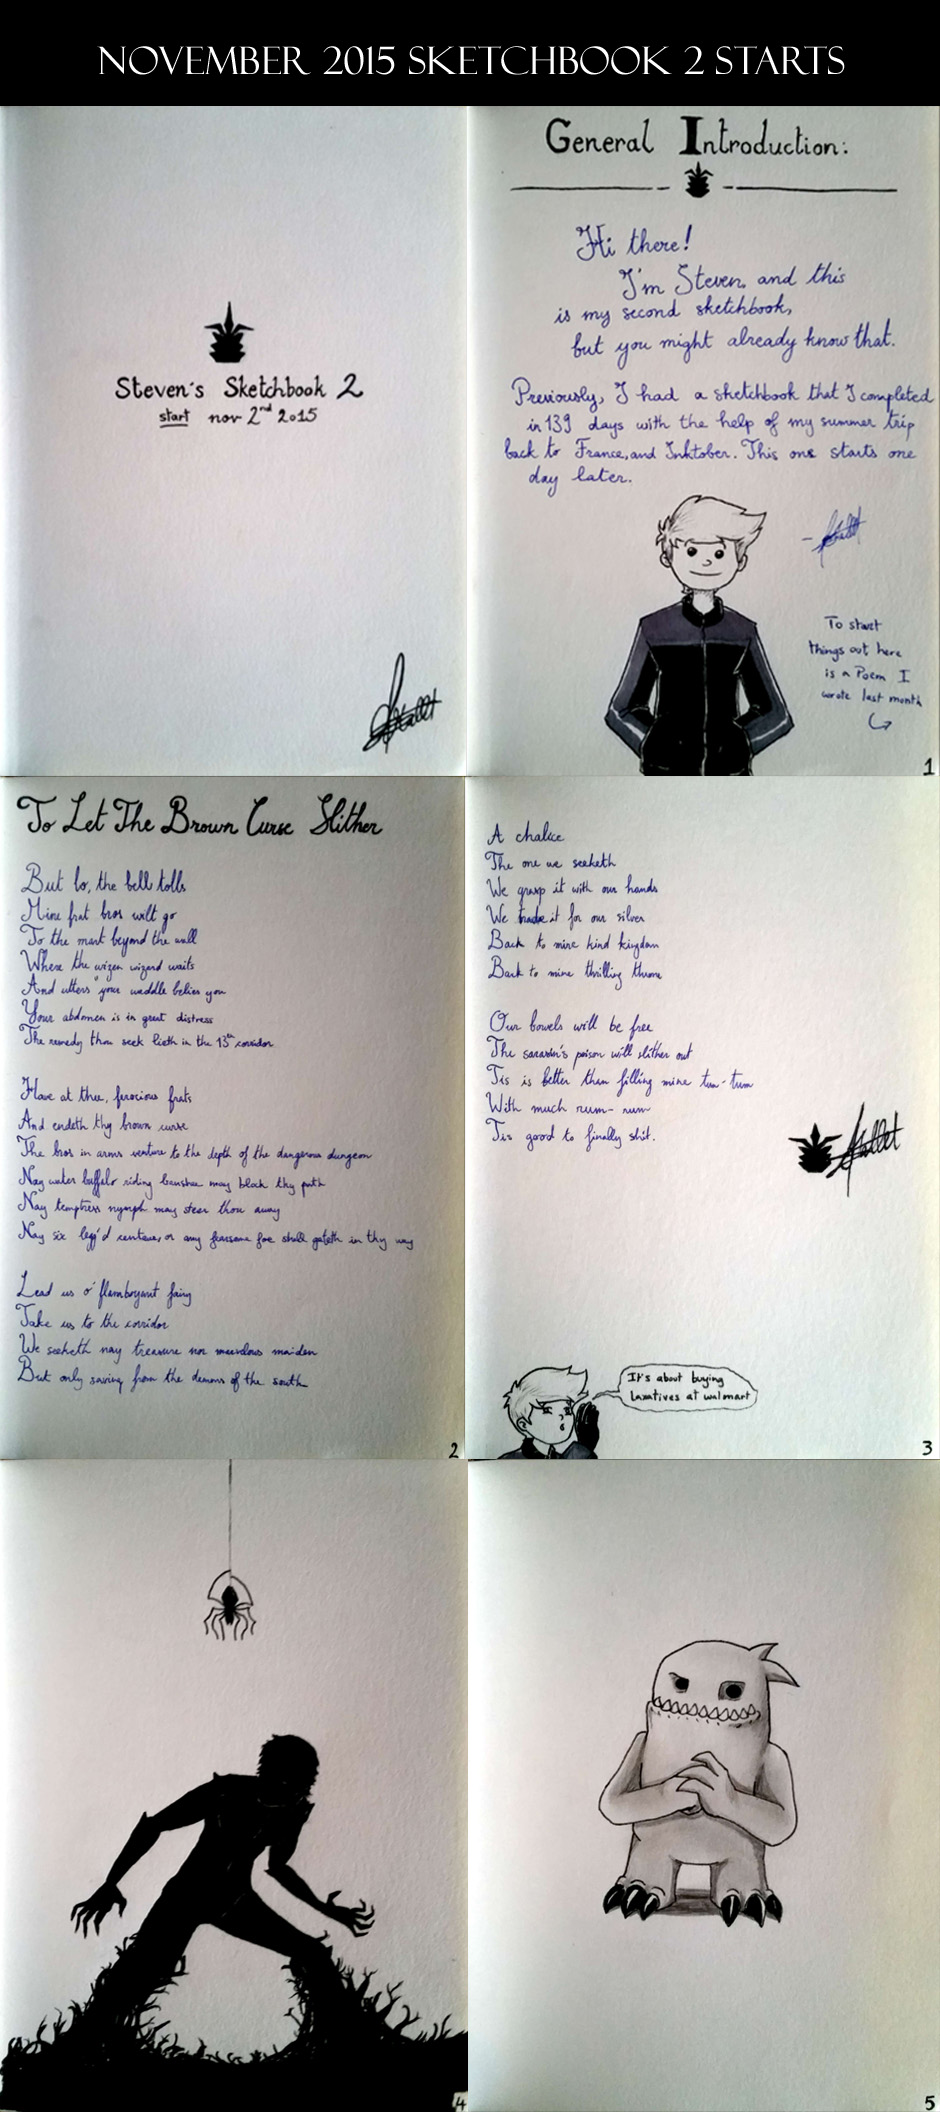 NOVEMBER 2015 SKETCHBOOK 2 STARTS
Steven's Sketchbook 2
start nov 2nd 2015
General Introduction:
Hi there!
I'm Steven, and this
is my second sketchbook,
but you might already know that.
Previously, I had a sketchbook that I completed
in 139 days with the help of my summer trip
back to France, and Inktober. This one starts one
day later.
To start
things out, here
is a Poem I
wrote last month
1
To Let The Brown Curse Slither
But lo, the bell tolls
Mine frat bros wilt go
To the mart beyond the wall
Where the wizen wizard waits
And utters "your waddle belies you
Your abdomen is in great distress
The remedy thou seek lieth in the 13th corridor
Have at thee, ferocious frats
And endeth thy brown curse
The bros in arms venture to the depth of the dangerous dungeon
Nay water buffalo riding banshee may block thy path
Nay temptress nymph may steer thou away
Nay six legg'd centaur, or any fearsome foe shall getteth in thy way
Lead us o' flamboyant fairy
Take us to the corridor
We seeketh nay treasure nor marvelous maiden
But only saving from the demons of the south
2
A chalice
The one we seeketh
We grasp it with our hands
We trade it for our silver
Back to mine kind kingdom
Back to mine thrilling throne
Our bowels will be free
The sarasin's poison will slither out
Tis is better than filling mine tum-tum
With much rum-rum
Tis good to finally shit.
It's about buying
laxatives at walmart
3
4
5